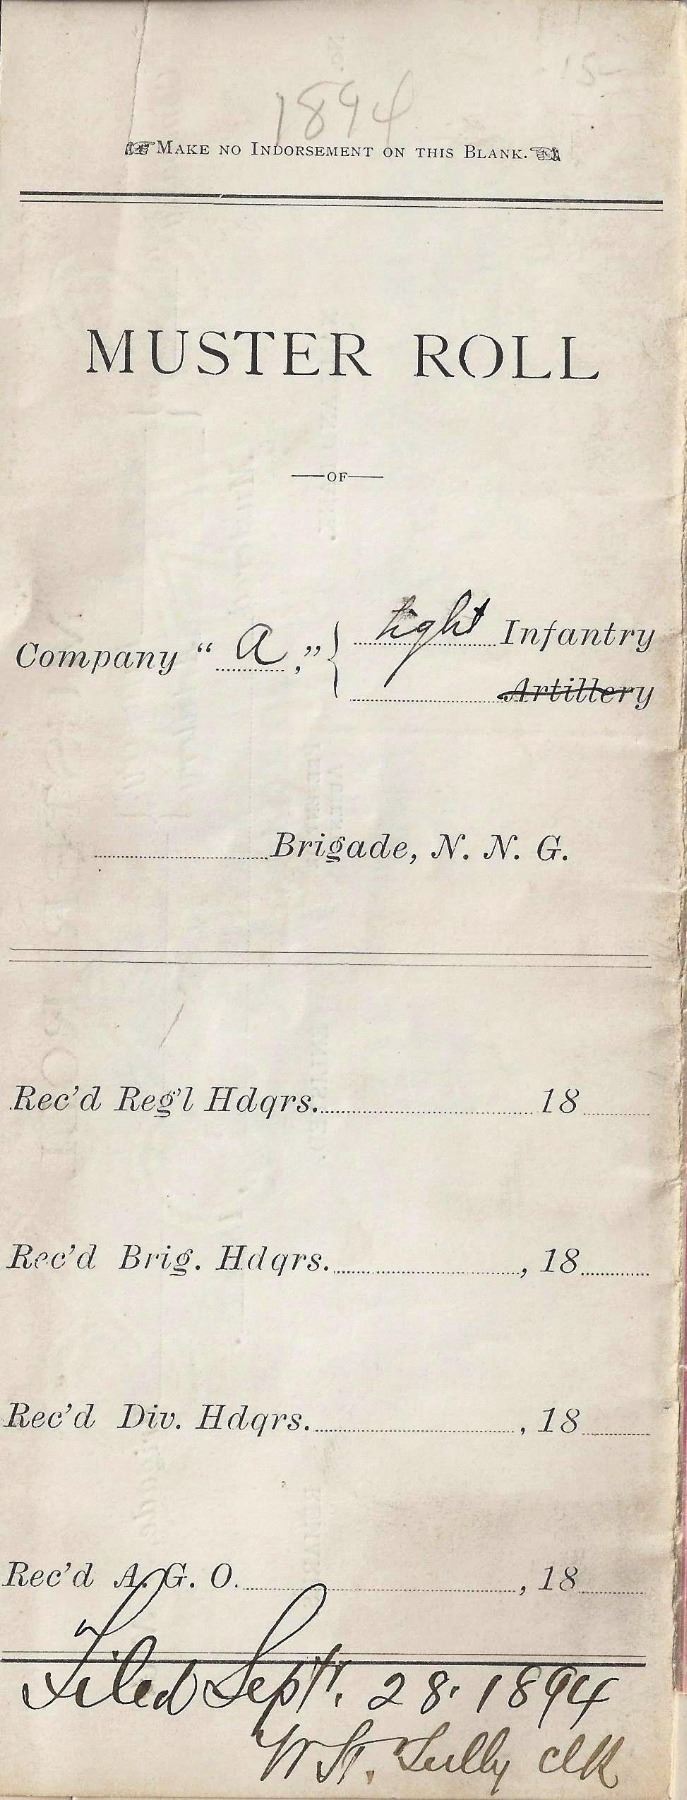 15
1894
MAKE NO INDORSEMENT ON THIS BLANK.
MUSTER ROLL
OF
Company "A," Light Infantry
Artillery
Brigade, N. N. G.
Rec'd Reg'l Hdqrs. 18
Rec'd Brig. Hdqrs. , 18
Rec'd Div. Hdqrs. , 18
Rec'd A. G. O. , 18
Filed Sept. 28. 1894
clk